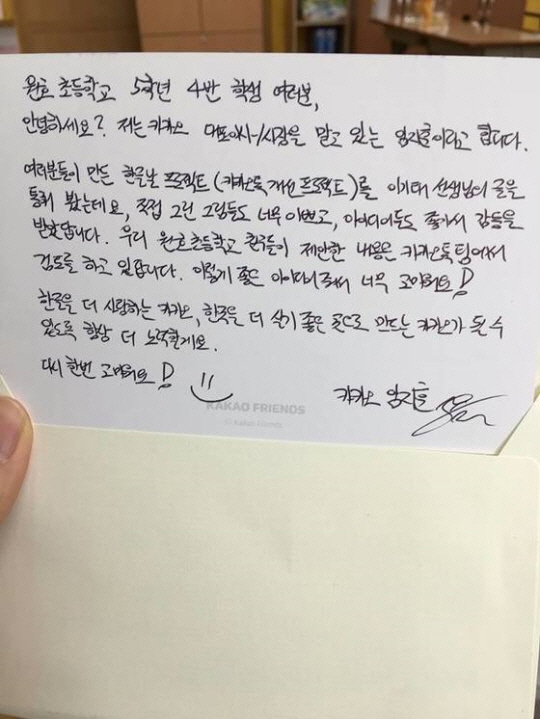 원호 초등학교 5학년 4반 학생 여러분,
안녕하세요? 저는 카카오 대표이사/사장을 맡고 있는 임지훈이라고 합니다.
여러분들이 만든 한글날 프로젝트(카카오톡 개선 프로젝트)를 이기태 선생님의 글을
통해 봤는데요, 직접 그린 그림들도 너무 이쁘고, 아이디어들도 좋아서 감동을
받았답니다. 우리 원호초등학교 친구들이 제안한 내용은 카카오톡 팀에서
검토를 하고 있답니다. 이렇게 좋은 아이디어 줘서 너무 고마워요!
한글을 더 사랑하는 카카오, 한국을 더 살기 좋은 곳으로 만드는 카카오가 될 수
있도록 항상 더 노력할게요.
다시 한번 고마워요!
카카오 임지훈
KAKAO FRIENDS
© Kakao Friends